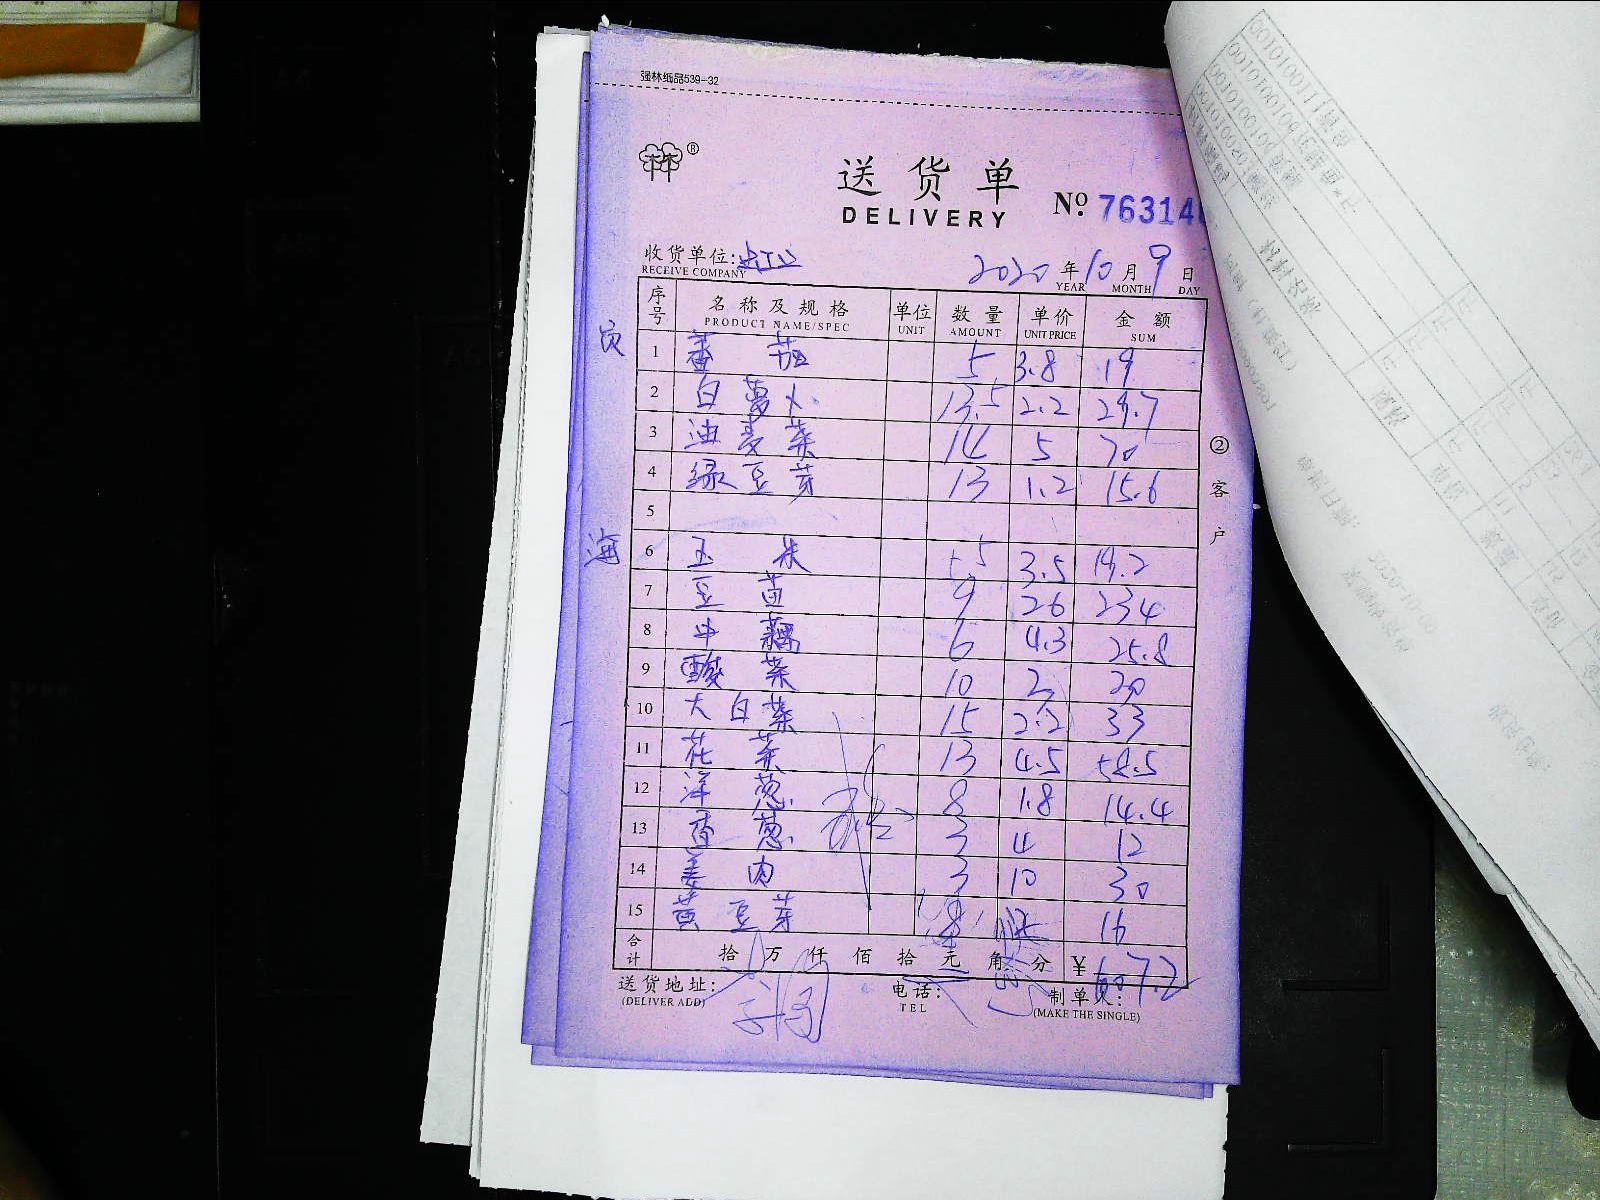 强林纸品539-32
林林®
送货单
DELIVERY
No. 76314
收货单位:
RECEIVE COMPANY
2020 年 10 月 9 日
YEAR MONTH DAY
序号 名称及规格 单位 数量 单价 金额
PRODUCT NAME/SPEC UNIT AMOUNT UNIT PRICE SUM
1 番茄 5 3.8 19
2 白萝卜 13.5 2.2 29.7
3 油麦菜 14 5 70
4 绿豆芽 13 1.2 15.6
5
海
6 玉米 5.5 3.5 19.2
7 豆苗 9 26 234
8 中藕 6 4.3 25.8
9 酸菜 10 2 20
10 大白菜 15 2.2 33
11 花菜 13 4.5 58.5
12 洋葱 8 1.8 14.4
13 香葱 3 4 12
14 姜肉 3 10 30
15 黄豆芽 16
合计 拾 万 仟 佰 拾 元 角 分 ¥607.2
送货地址: 电话: 制单人:
(DELIVER ADD) TEL (MAKE THE SINGLE)
②客户